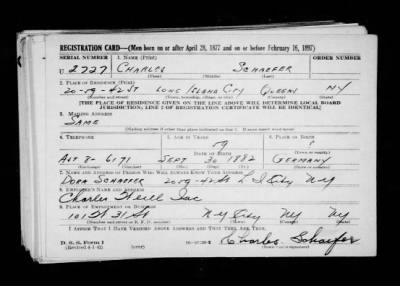 REGISTRATION CARD—(Men born on or after April 28, 1877 and on or before February 16, 1897)
SERIAL NUMBER 1. NAME (Print)
U 2727 CHARLES SCHAEFER
(First) (Middle) (Last)
2. PLACE OF RESIDENCE (Print)
20-59-42 ST LONG ISLAND CITY QUEENS NY
(Number and street) (Town, township, village, or city) (County) (State)
[THE PLACE OF RESIDENCE GIVEN ON THE LINE ABOVE WILL DETERMINE LOCAL BOARD
JURISDICTION; LINE 2 OF REGISTRATION CERTIFICATE WILL BE IDENTICAL]
3. MAILING ADDRESS
SAME
4. TELEPHONE 5. AGE IN YEARS 6. PLACE OF BIRTH
59
DATE OF BIRTH
6171 SEPT 30 1882 GERMANY
7. NAME AND ADDRESS OF PERSON WHO WILL ALWAYS KNOW YOUR ADDRESS
DORA SCHAEFER 2059-42 St L I City N-Y
8. EMPLOYER'S NAME AND ADDRESS
Charles Inc
9. PLACE OF EMPLOYMENT OR BUSINESS
101 St 31 St N-Y City NY NY
I AFFIRM THAT I HAVE VERIFIED ABOVE ANSWERS AND THAT THEY ARE TRUE.
D. S. S. Form 1
(Revised 4-1-42) (over)
Charles Schaefer